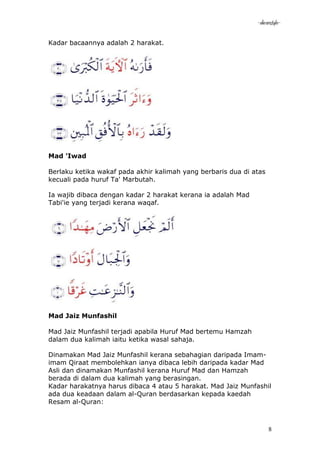 Kadar bacaannya adalah 2 harakat.
فَأَرَىٰهُ ٱلْءَايَةَ ٱلْكُبْرَىٰ
وَءَاثَرَ ٱلْحَيَوٰةَ ٱلدُّنْيَا
وَلَقَدْ رَءَاهُ بِٱلْأُفُقِ ٱلْمُبِينِ
Mad 'Iwad
Berlaku ketika wakaf pada akhir kalimah yang berbaris dua di atas
kecuali pada huruf Ta' Marbutah.
Ia wajib dibaca dengan kadar 2 harakat kerana ia adalah Mad
Tabi'ie yang terjadi kerana waqaf.
أَلَمْ نَجْعَلِ ٱلْأَرْضَ مِهَٰدًا
وَٱلْجِبَالَ أَوْتَادًا
وَٱلنَّٰزِعَٰتِ غَرْقًا
Mad Jaiz Munfashil
Mad Jaiz Munfashil terjadi apabila Huruf Mad bertemu Hamzah
dalam dua kalimah iaitu ketika wasal sahaja.
Dinamakan Mad Jaiz Munfashil kerana sebahagian daripada Imam-
imam Qiraat membolehkan ianya dibaca lebih daripada kadar Mad
Asli dan dinamakan Munfashil kerana Huruf Mad dan Hamzah
berada di dalam dua kalimah yang berasingan.
Kadar harakatnya harus dibaca 4 atau 5 harakat. Mad Jaiz Munfashil
ada dua keadaan dalam al-Quran berdasarkan kepada kaedah
Resam al-Quran:
8